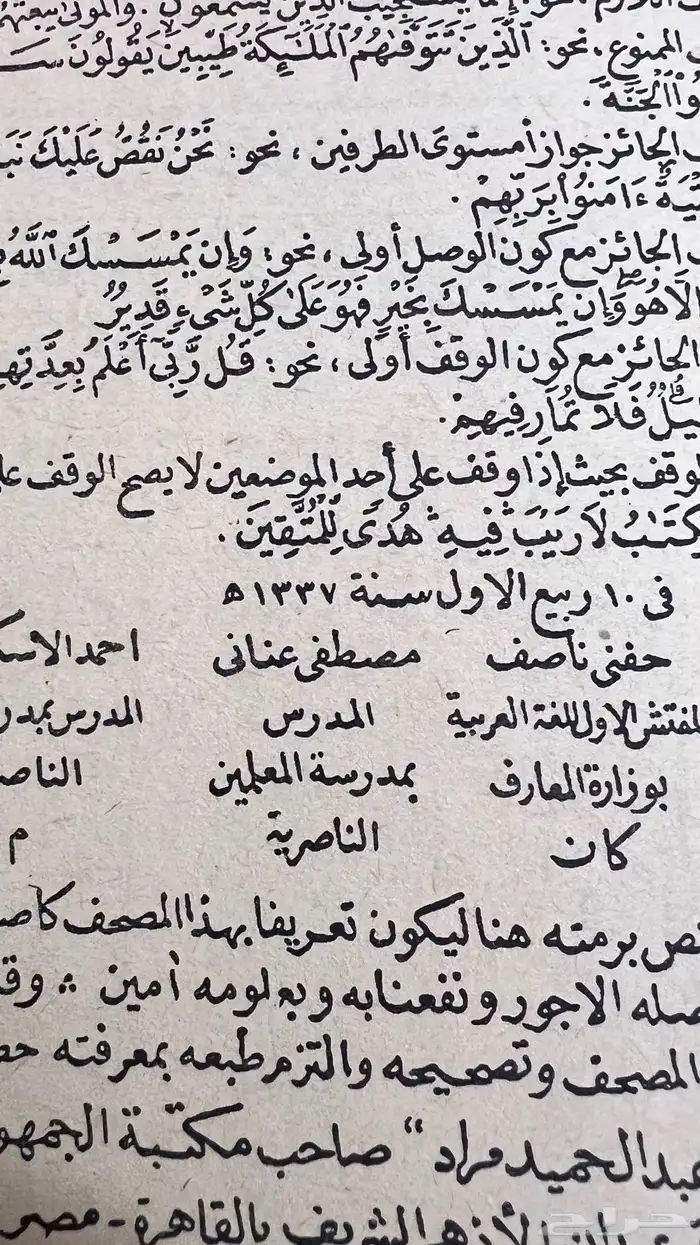 اللازم نحو: إنما يستجيب ٱلذين يسمعون. والموتى يبعثهم
الممنوع، نحو: ٱلَّذِينَ تَتَوَفَّىٰهُمُ ٱلْمَلَٰٓئِكَةُ طَيِّبِينَ يَقُولُونَ
ٱلْجَنَّةَ.
الجائز جوازا مستوى الطرفين، نحو: نَّحْنُ نَقُصُّ عَلَيْكَ
ءَامَنُوا۟ بِرَبِّهِمْ.
الجائز مع كون الوصل أولى، نحو: وَإِن يَمْسَسْكَ ٱللَّهُ
إِلَّا هُوَ ۖ وَإِن يَمْسَسْكَ بِخَيْرٍ فَهُوَ عَلَىٰ كُلِّ شَىْءٍ قَدِيرٌ
الجائز مع كون الوقف أولى، نحو: قُل رَّبِّىٓ أَعْلَمُ بِعِدَّتِهِم
فَلَا تُمَارِ فِيهِمْ.
الوقف بحيث إذا وقف على أحد الموضعين لا يصح الوقف
لَا رَيْبَ ۛ فِيهِ ۛ هُدًى لِّلْمُتَّقِينَ.
فى ١٠ ربيع الاول سنة ١٣٣٧ ه
حفنى ناصف مصطفى عنانى احمد
المفتش الاول للغة العربية المدرس المدرس
بوزارة المعارف بمدرسة المعلمين
كان الناصرية م
برمته هنا ليكون تعريفا بهذا المصحف
الاجور ونفعنا به وبعلومه أمين ؞
المصحف وتصحيحه والتزم طبعه بمعرفته
عبد الحميد مراد" صاحب مكتبة
الأزهر الشريف بالقاهرة - مصر
حراج